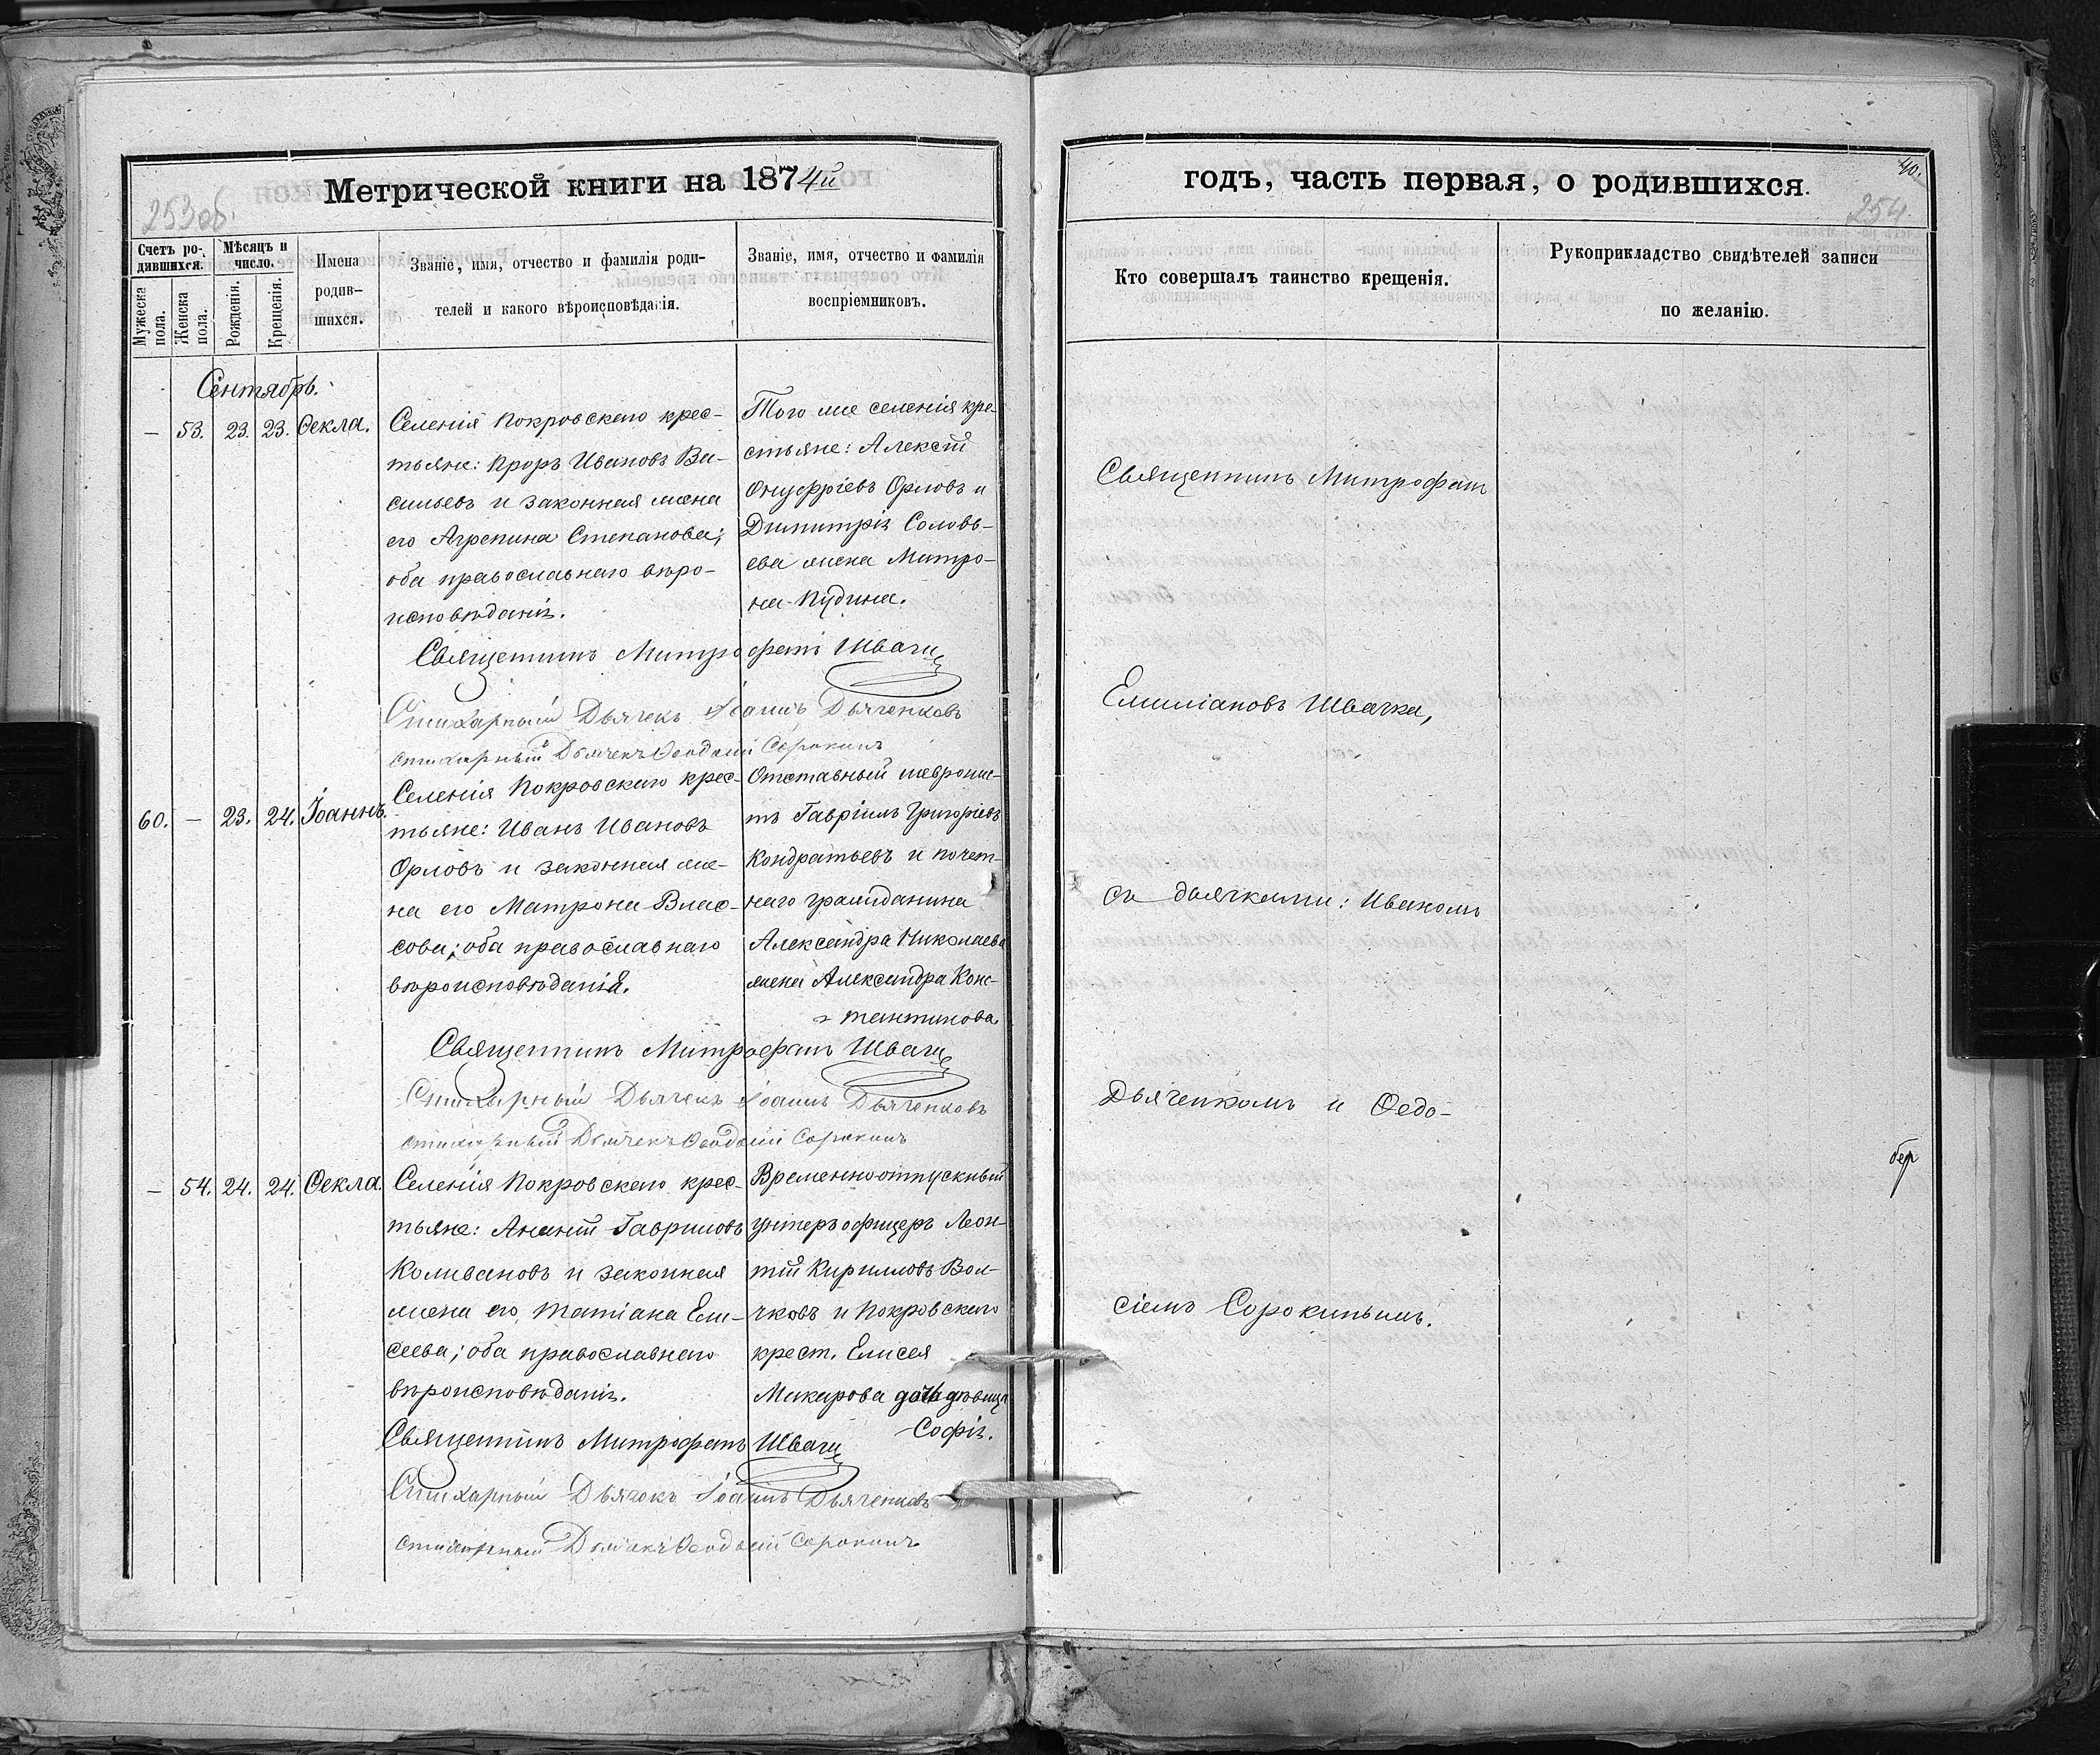 Метрической книги на 1874й
253об.
Счетъ ро-
дившихся.
Мѣсяцъ и
число.
Мужеска пола.
Женска пола.
Рожденія.
Крещенія.
Имена
родив-
шихся.
Званіе, имя, отчество и фамилія роди-
телей и какого вѣроисповѣданія.
Званіе, имя, отчество и фамилія
воспріемниковъ.
Сентябрь.
— 53. 23. 23. Ѳекла.
Селенія Покровскаго крес-
тьяне: Проръ Ивановъ Ва-
сильевъ и законная жена
его Агрепина Степанова;
оба православнаго вѣро-
исповѣданія.
Того же селенія кре-
стьяне: Алексѣй
Онуфріевъ Орловъ и
Димитрія Соловь-
ева жена Матро-
на Кудина.
Священникъ Митрофанъ Швачка
Стихарный Дьячекъ Іоаннъ Дьяченковъ
стихарный Дьячекъ Ѳеодосій Сорокинъ
60. — 23. 24. Іоаннъ.
Селенія Покровскаго крес-
тьяне: Иванъ Ивановъ
Орловъ и законная же-
на его Матрона Влас-
сова; оба православнаго
вѣроисповѣданія.
Отставный
Гавріилъ Григоріевъ
Кондратьевъ и почет-
наго гражданина
Александра Николаева
жена Александра Конс-
тантинова
Священникъ Митрофанъ Швачка
Стихарный Дьячекъ Іоаннъ Дьяченковъ
стихарный Дьячекъ Ѳеодосій Сорокинъ
— 54. 24. 24. Ѳекла.
Селенія Покровскаго крес-
тьяне: Ананій Гавриловъ
Коливановъ и законная
жена его Татіана Ели-
сеева; оба православнаго
вѣроисповѣданія.
Временно отпускный
унтеръ офицеръ Леон-
тій Кирилловъ Вол-
чковъ и Покровскаго
крест. Елисея
Макарова дочь дѣвица
Софія.
Священникъ Митрофанъ Швачка
Стихарный Дьячокъ Іоаннъ Дьяченковъ
стихарный Дьячекъ Ѳеодосій Сорокинъ
годъ, часть первая, о родившихся.
40.
254.
Кто совершалъ таинство крещенія.
Рукоприкладство свидѣтелей записи
по желанію.
Священникъ Митрофанъ
Емиліановъ Швачка,
съ дьячками: Иваномъ
Дьяченкомъ и Ѳедо-
сіемъ Сорокинымъ.